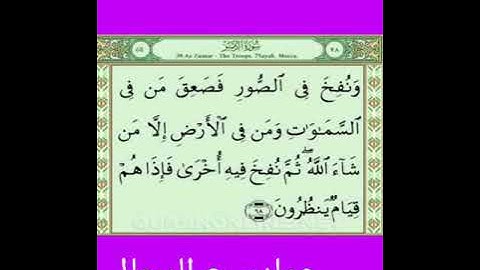 سورة الزمر
39 Az Zumar - The Troops, 75ayah, Mecca,
٦٨
وَنُفِخَ فِى ٱلصُّورِ فَصَعِقَ مَن فِى
ٱلسَّمَـٰوَٰتِ وَمَن فِى ٱلْأَرْضِ إِلَّا مَن
شَآءَ ٱللَّهُ ۖ ثُمَّ نُفِخَ فِيهِ أُخْرَىٰ فَإِذَا هُمْ
قِيَامٌ يَنظُرُونَ ٦٨